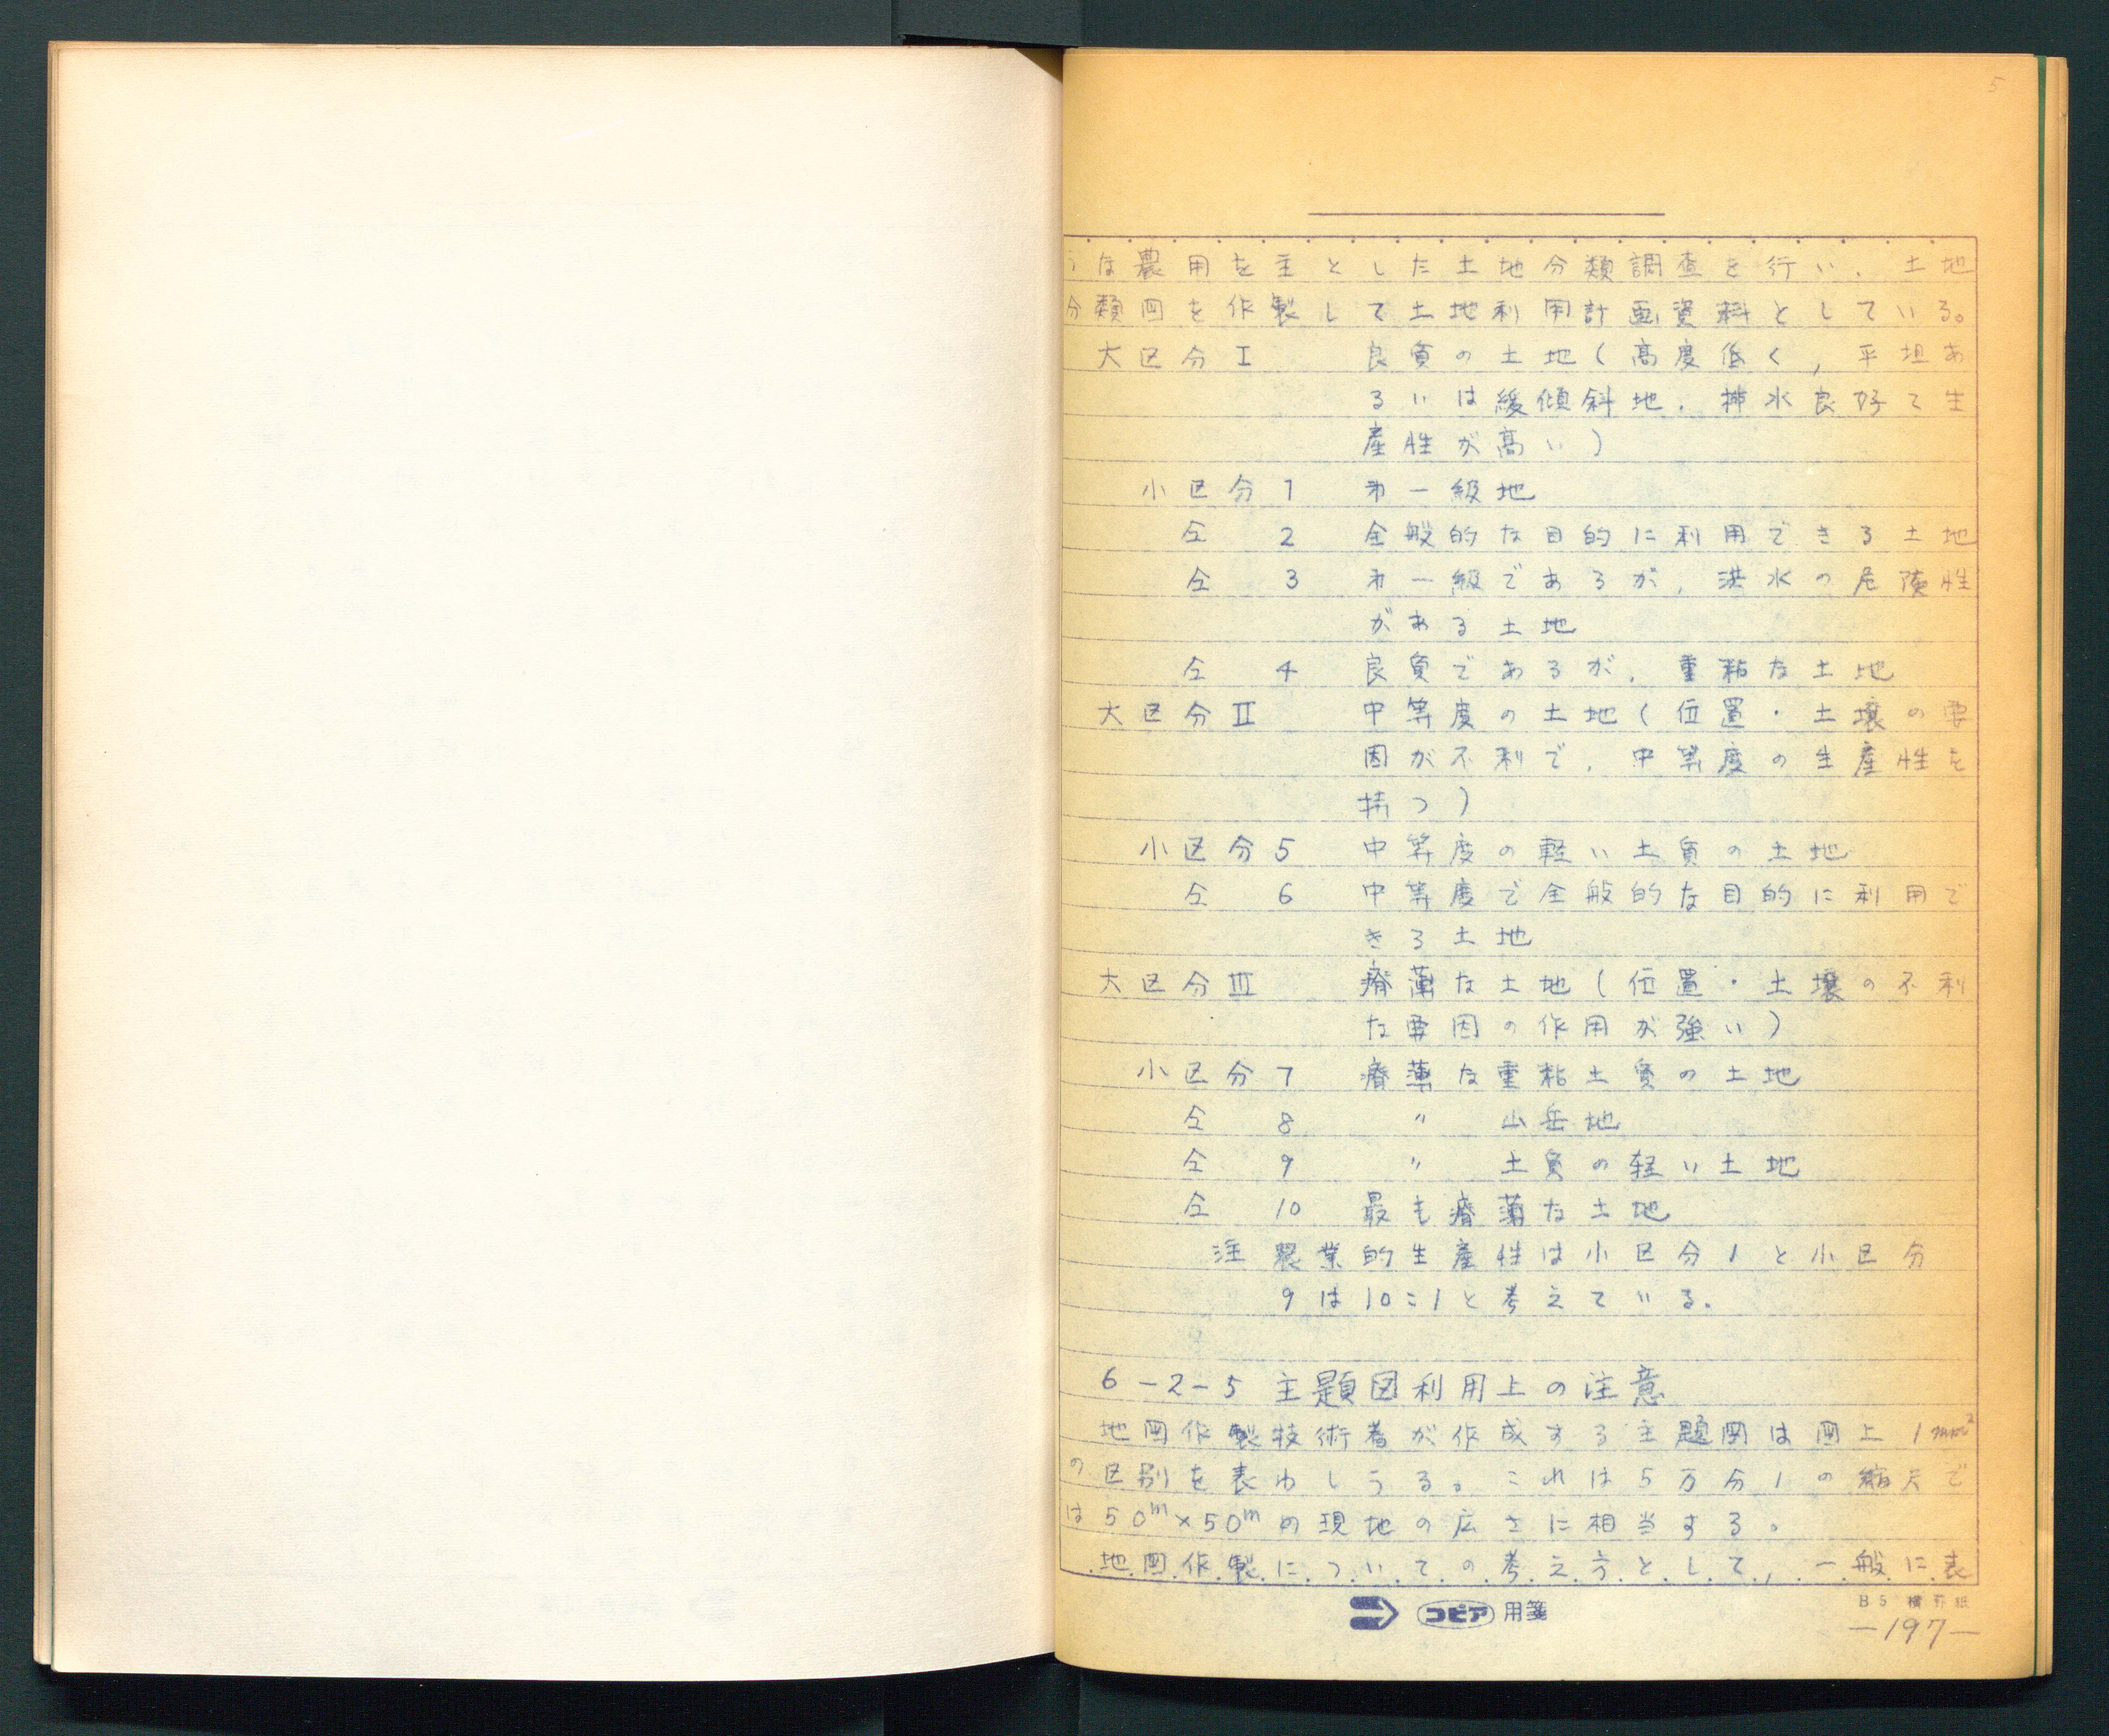 5
うな農用を主とした土地分類調査を行い、土地
分類図を作製して土地利用計画資料としている。
大区分Ⅰ 良質の土地(高度低く,平坦あ
るいは緩傾斜地,排水良好で生
産性が高い)
小区分1 第一級地
仝 2 全般的な目的に利用できる土地
仝 3 第一級であるが,洪水の危険性
がある土地
仝 4 良質であるが,重粘な土地
大区分Ⅱ 中等度の土地(位置・土壌の要
因が不利で,中等度の生産性を
持つ)
小区分5 中等度の軽い土質の土地
仝 6 中等度で全般的な目的に利用で
きる土地
大区分Ⅲ 瘠薄な土地(位置・土壌の不利
な要因の作用が強い)
小区分7 瘠薄な重粘土質の土地
仝 8 〃 山岳地
仝 9 〃 土質の軽い土地
仝 10 最も瘠薄な土地
注 農業的生産性は小区分1と小区分
9は10:1と考えている。
6-2-5 主題図利用上の注意
地図作製技術者が作成する主題図は図上1mm²
の区別を表わしうる。これは5万分1の縮尺で
は50m×50mの現地の広さに相当する。
地図作製についての考え方として,一般に表
コピア 用箋
B5 横罫紙
-197-